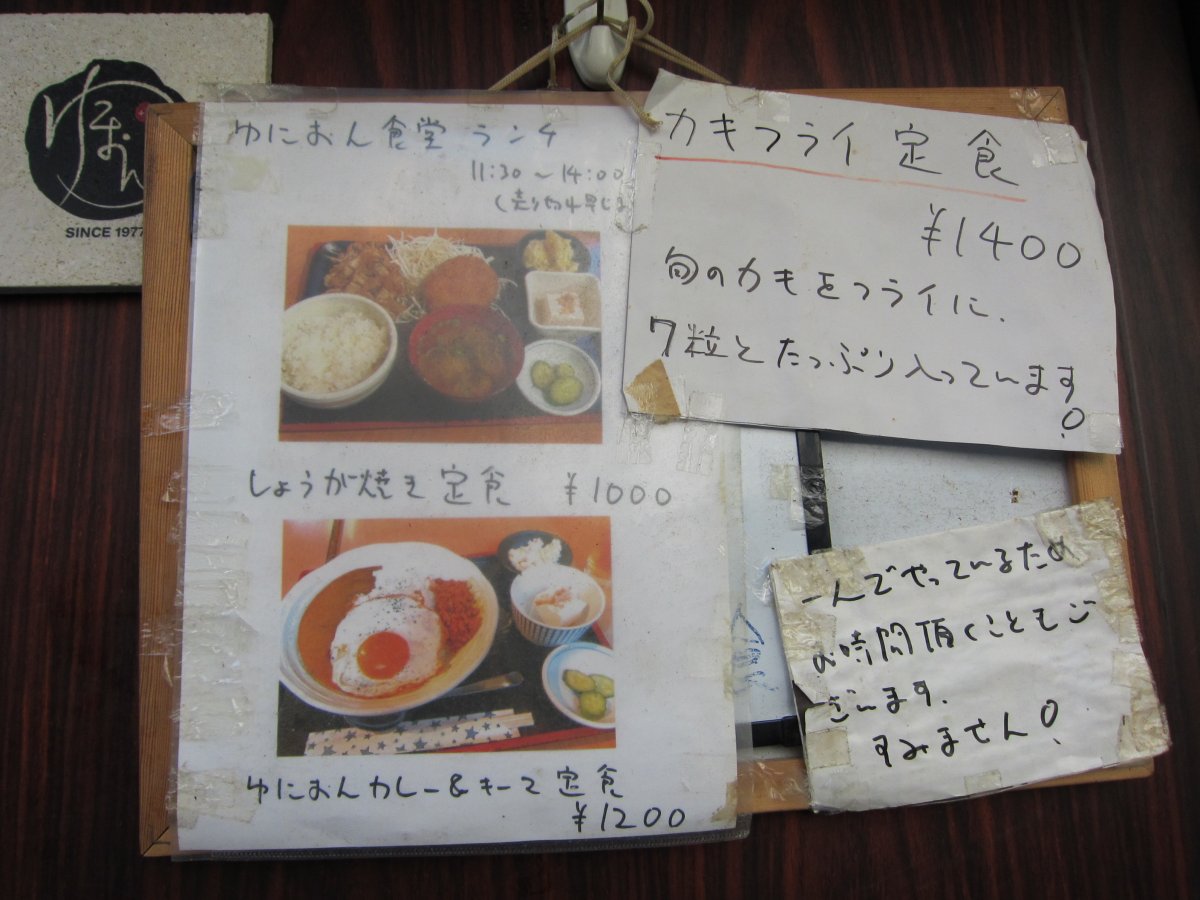 SINCE 1977
ゆにおん食堂 ランチ
11:30 ~ 14:00
(売り切れ早じま
しょうが焼き定食 ¥1000
ゆにおんカレー&キーマ定食
¥1200
カキフライ定食
¥1400
旬のカキをフライに、
7粒とたっぷり入っています
!
一人でやっているため
お時間頂くこともご
ざいます。
すみません!